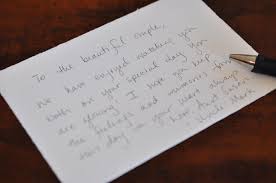 To the beautiful couple,
We have enjoyed watching you
both on your special day. You
are glowing! I hope you keep
the feelings and memories from
this day in your heart always
Aunt Susan
& Uncle Mark